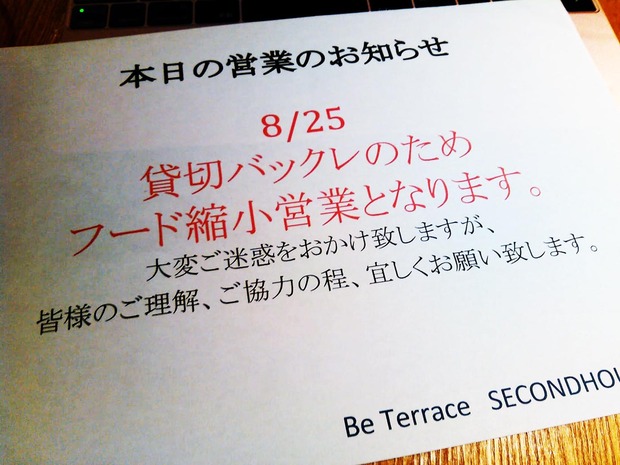 本日の営業のお知らせ
8/25
貸切バックレのため
フード縮小営業となります。
大変ご迷惑をおかけ致しますが、
皆様のご理解、ご協力の程、宜しくお願い致します。
Be Terrace SECONDHOU